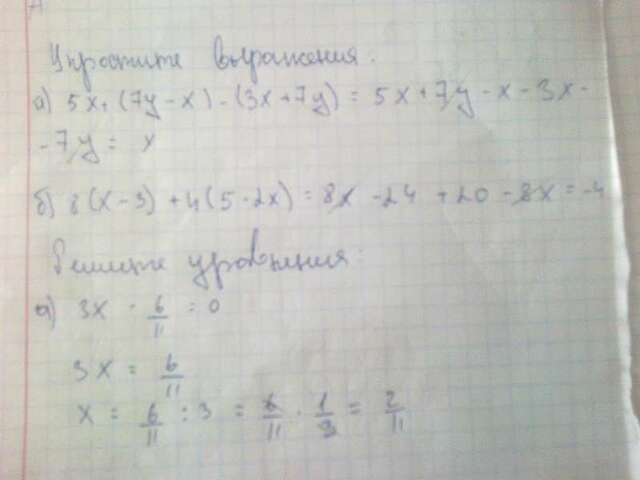 Упростите выражения.
а) 5x + (7y - x) - (3x + 7y) = 5x + 7y - x - 3x -
- 7y = x
б) 8(x - 3) + 4(5 - 2x) = 8x - 24 + 20 - 8x = -4
Решите уравнения:
а) 3x - 6/11 = 0
3x = 6/11
x = 6/11 : 3 = 6/11 · 1/3 = 2/11